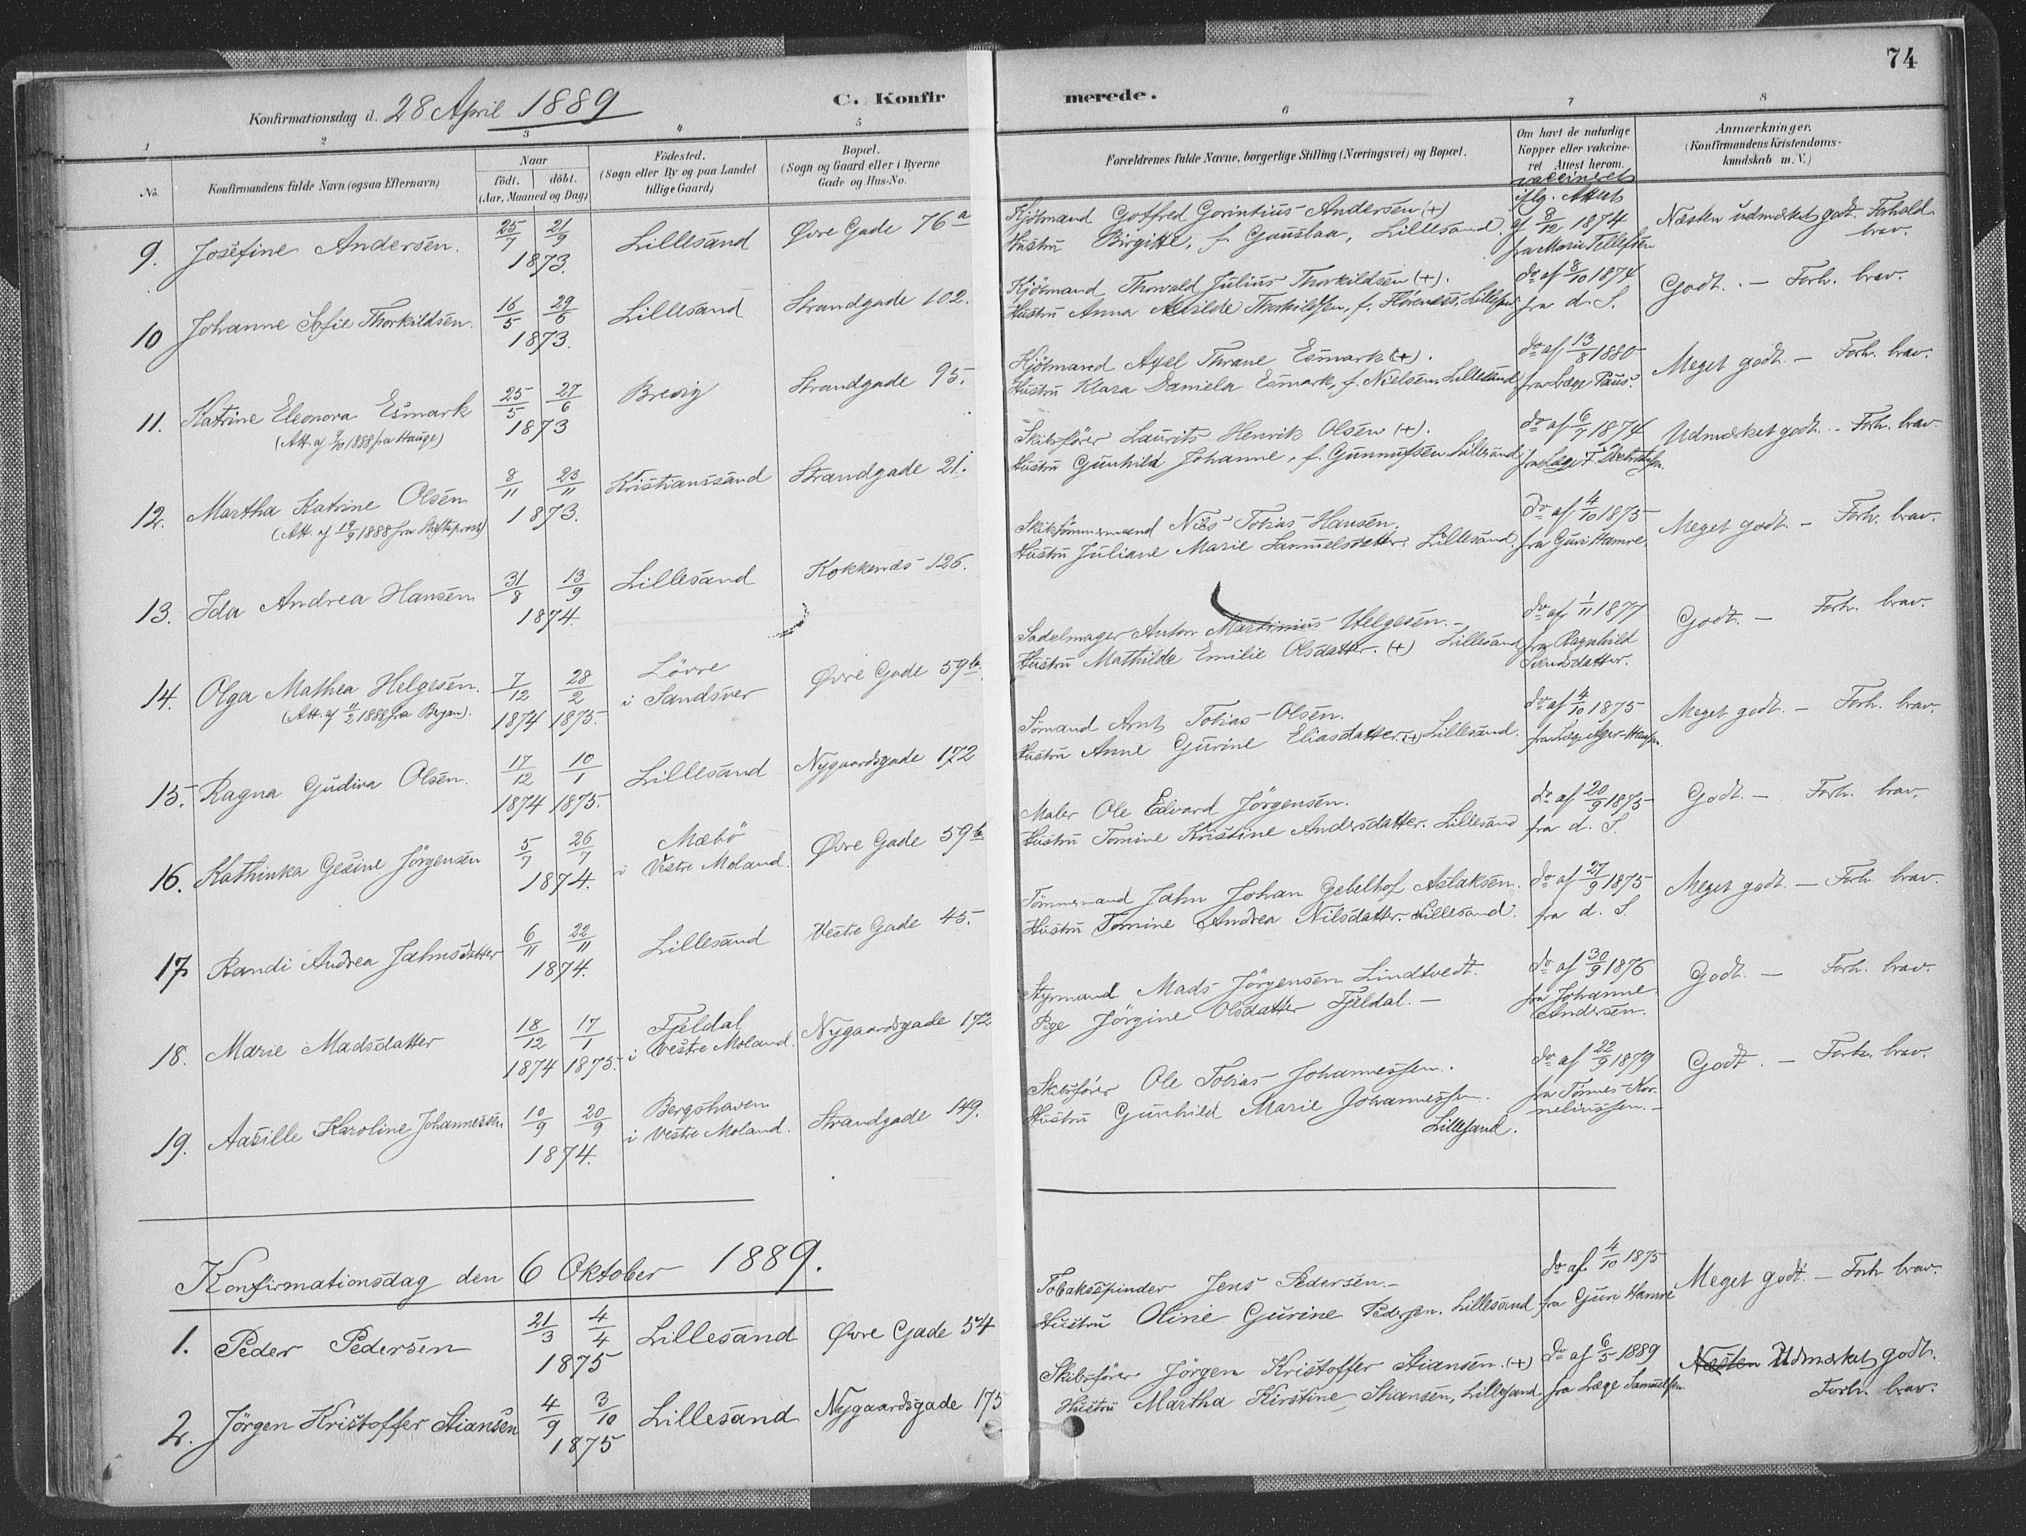 74
Konfirmationsdag d. 28 April 1889
C. Konfir merede.
1 2 3 " 5 6 7 8
No.
Konfirmandens fulde Navn (ogsaa Efternavn)
Naar
født. døbt.
(Aar, Maaned og Dag)
Fødested.
(Sogn eller By og paa Landet
tillige Gaard)
Bopæl.
(Sogn og Gaard eller i Byerne
Gade og Hus-No.
Forældrenes fulde Navne, borgerlige Stilling (Næringsvei) og Bopæl.
Om havt de naturlige
Kopper eller vakcine-
ret Attest herom.
Anmærkninger.
(Konfirmandens Kristendoms-
kundskab m. V.)
9. Josefine Andersen. 25/7 21/9 1873. Lillesand Øvre Gade 76a
Kjøbmand Gotfred Gorintius Andersen (+)
Hustru Birgitte, f. Gauslaa, Lillesand.
vaccineret
iflg. Attest
af 8/12 1874
fra Marie Tellefsen
Næsten udmærket godt. Forhold
brav.
10 Johanne Sofie Thorkildsen. 16/5 29/6 1873. Lillesand Strandgade 102.
Kjøbmand Thorvald Julius Thorkildsen (+).
Hustru Anna Matilde Thorkildsen, f. Lillesand
do af 8/10 1874
fra d. S.
Godt. - Forh. brav.
11. Katrine Eleonora Esmark 25/5 27/6 1873 Brevig Strandgade 95.
(Att. af 1888 fra Hauge)
Kjøbmand Axel Thrane Esmark (+).
Hustru Klara Daniela Esmark, f. Nielsen. Lillesand
do af 13/8 1880
fra Læge Paus.
Meget godt. - Forh. brav.
12. Martha Katrine Olsen 8/11 23/11 1873. Kristianssand Strandgade 21.
(Att. af 19/9 1888 fra Stiftsprost)
Skibsfører Laurits Henrik Olsen (+).
Hustru Gunhild Johanne, f. Gunnufsen. Lillesand
do af 6/7 1874
fra Læge
Udmærket godt. - Forh. brav.
13. Ida Andrea Hansen 31/8 13/9 1874. Lillesand Kokkenæs 126.
Skibstømmermand Nils Tobias Hansen.
Hustru Juliane Marie Samuelsdatter. Lillesand.
do af 4/10 1875
fra Guri Hamre.
Meget godt - Forh. brav.
14. Olga Mathea Helgesen. 7/12 28/2 1874 1875. Løvre
i Sandsver Øvre Gade 59b.
(Att. af 11/2 1888 fra Bergan).
Sadelmager Anton Martinius Helgesen. -
Hustru Mathilde Emilie Olsdatter. (+) Lillesand
do af 1/11 1877
fra Ragnhild
Godt. - Forh. brav.
15. Ragna Gudiva Olsen. 17/12 10/1 1874 1875. Lillesand Nygaardsgade 172
Sømand Arnt Tobias Olsen.
Hustru Anne Gurine Eliasdatter (+) Lillesand.
do af 4/10 1875
fra Læge
Meget godt. - Forh. brav.
16. Kathinka Gesine Jørgensen 5/7 26/7 1874. Mæbø
i Vestre Moland. Øvre Gade 59b
Maler Ole Edvard Jørgensen.
Hustru Tomine Kristine Andersdatter. Lillesand
do af 20/9 1875
fra d. S.
Godt. - Forh. brav.
17. Randi Andrea Jahnsdatter 6/11 22/11 1874. Lillesand Vestre Gade 45.
Tømmermand Jahn Johan Gebelhof Aslaksen.
Hustru Tomine Andrea Nilsdatter. Lillesand.
do af 27/9 1875
fra d. S.
Meget godt. - Forh. brav.
18. Marie Madsdatter 18/12 17/1 1874 1875. Fjeldal
i Vestre Moland. Nygaardsgade 172
Styrmand Mads Jørgensen Lindtvedt.
Pige Jørgine Olsdatter Fjeldal. -
do af 30/9 1876
fra Johanne
Andersen.
Godt. - Forh. brav.
19. Aasille Karoline Johannessen 10/9 20/9 1874. Bergshaven
i Vestre Moland. Strandgade 149.
Skibsfører Ole Tobias Johannessen.
Hustru Gunhild Marie Johannessen.
Lillesand.
do af 22/9 1879
fra Tomes Kor-
neliussen. -
Godt. - Forh. brav.
Konfirmationsdag den 6 Oktober 1889.
1. Peder Pedersen 21/3 4/4 1875 Lillesand Øvre Gade 54
Tobaksspinder Jens Pedersen. -
Hustru Oline Gurine Pedersen. Lillesand
do af 4/10 1875
fra Guri Hamre
Meget godt. - Forh brav.
2. Jørgen Kristoffer Stiansen 4/9 3/10 1875 Lillesand Nygaardsgade 175
Skibsfører Jørgen Kristoffer Stiansen. (+)
Hustru Martha Kirstine Stiansen, Lillesand.
do af 6/5 1889
fra Læge Samuelsen
Næsten Udmærket godt.
Forh. brav.